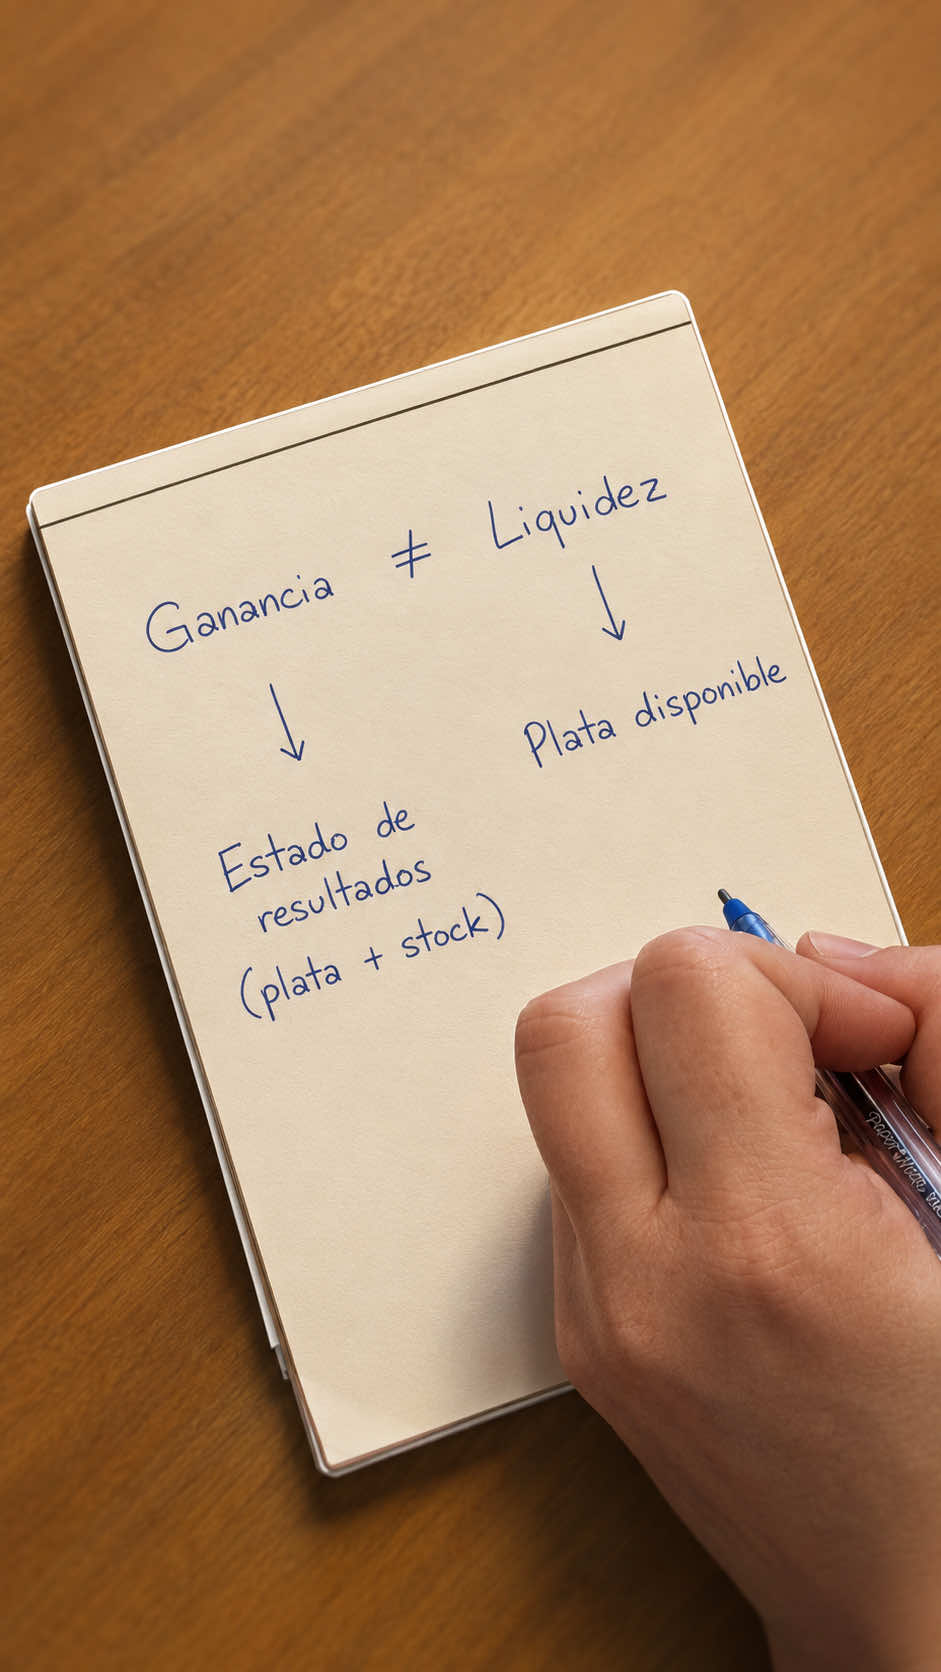 Ganancia ≠ Liquidez
↓ ↓
Plata disponible
Estado de
resultados
(plata + stock)